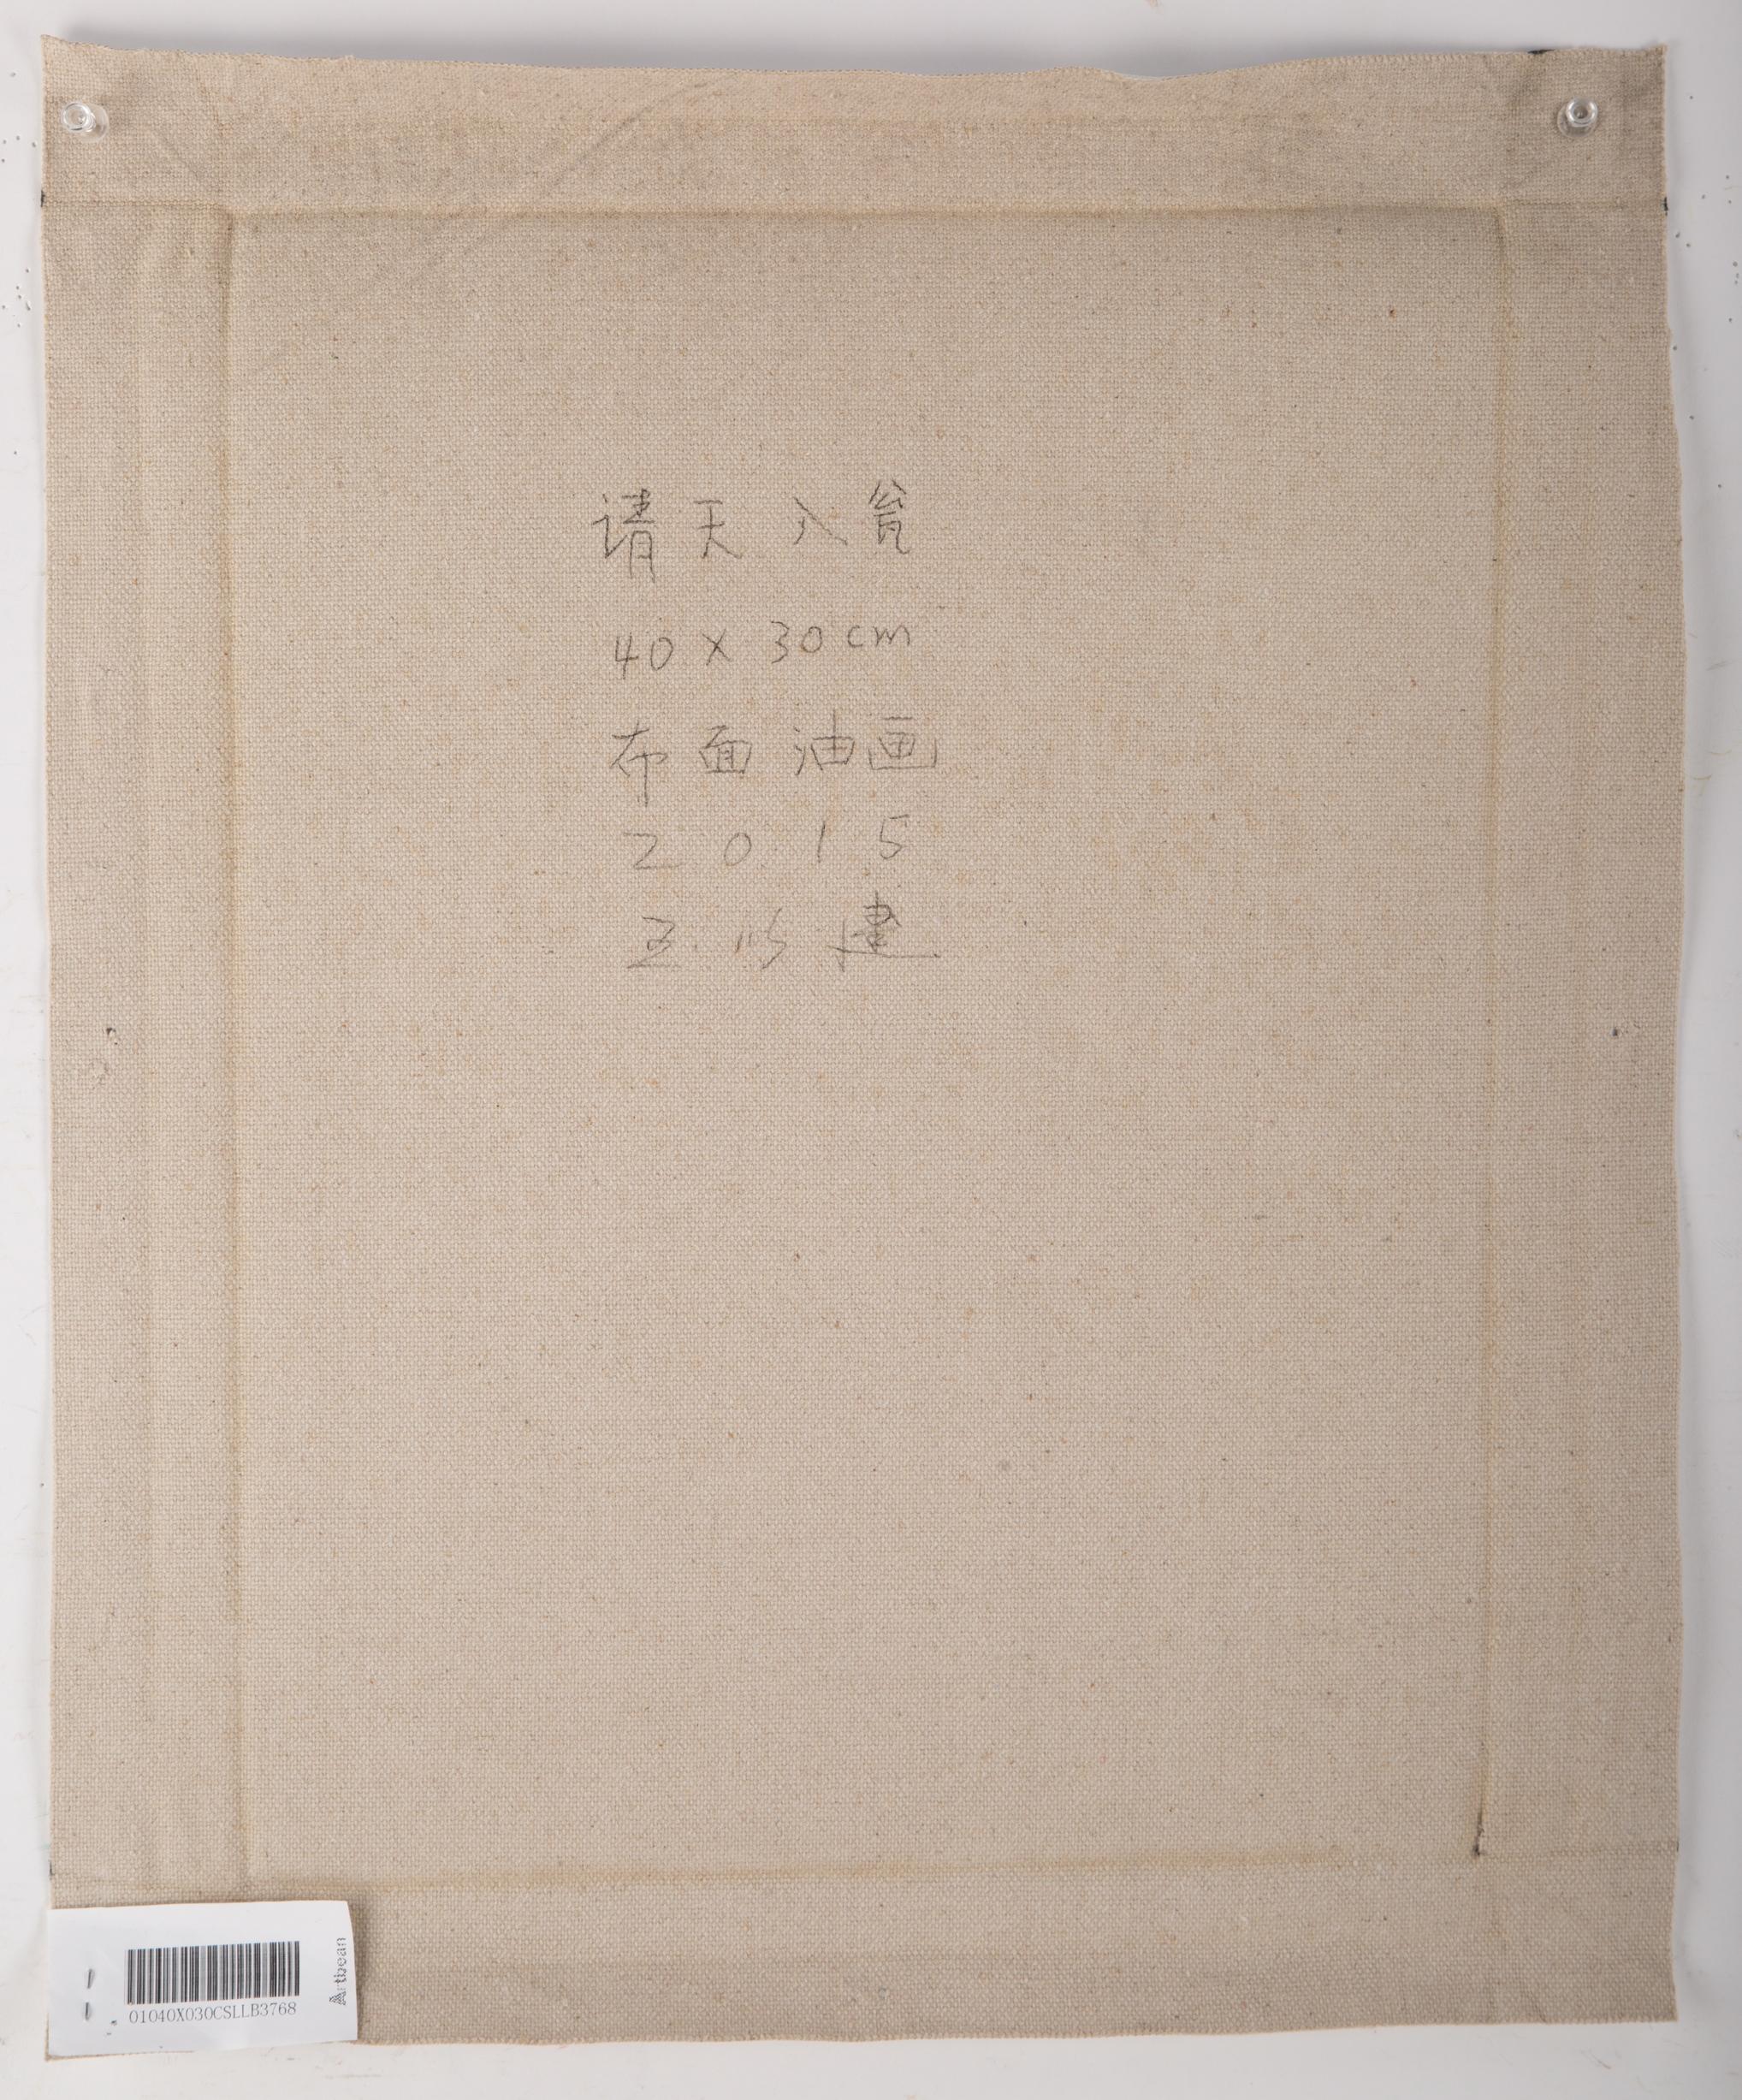 请天入瓮
40 x 30cm
布面油画
2015
建
01040X030CSLLB3768
Artbean